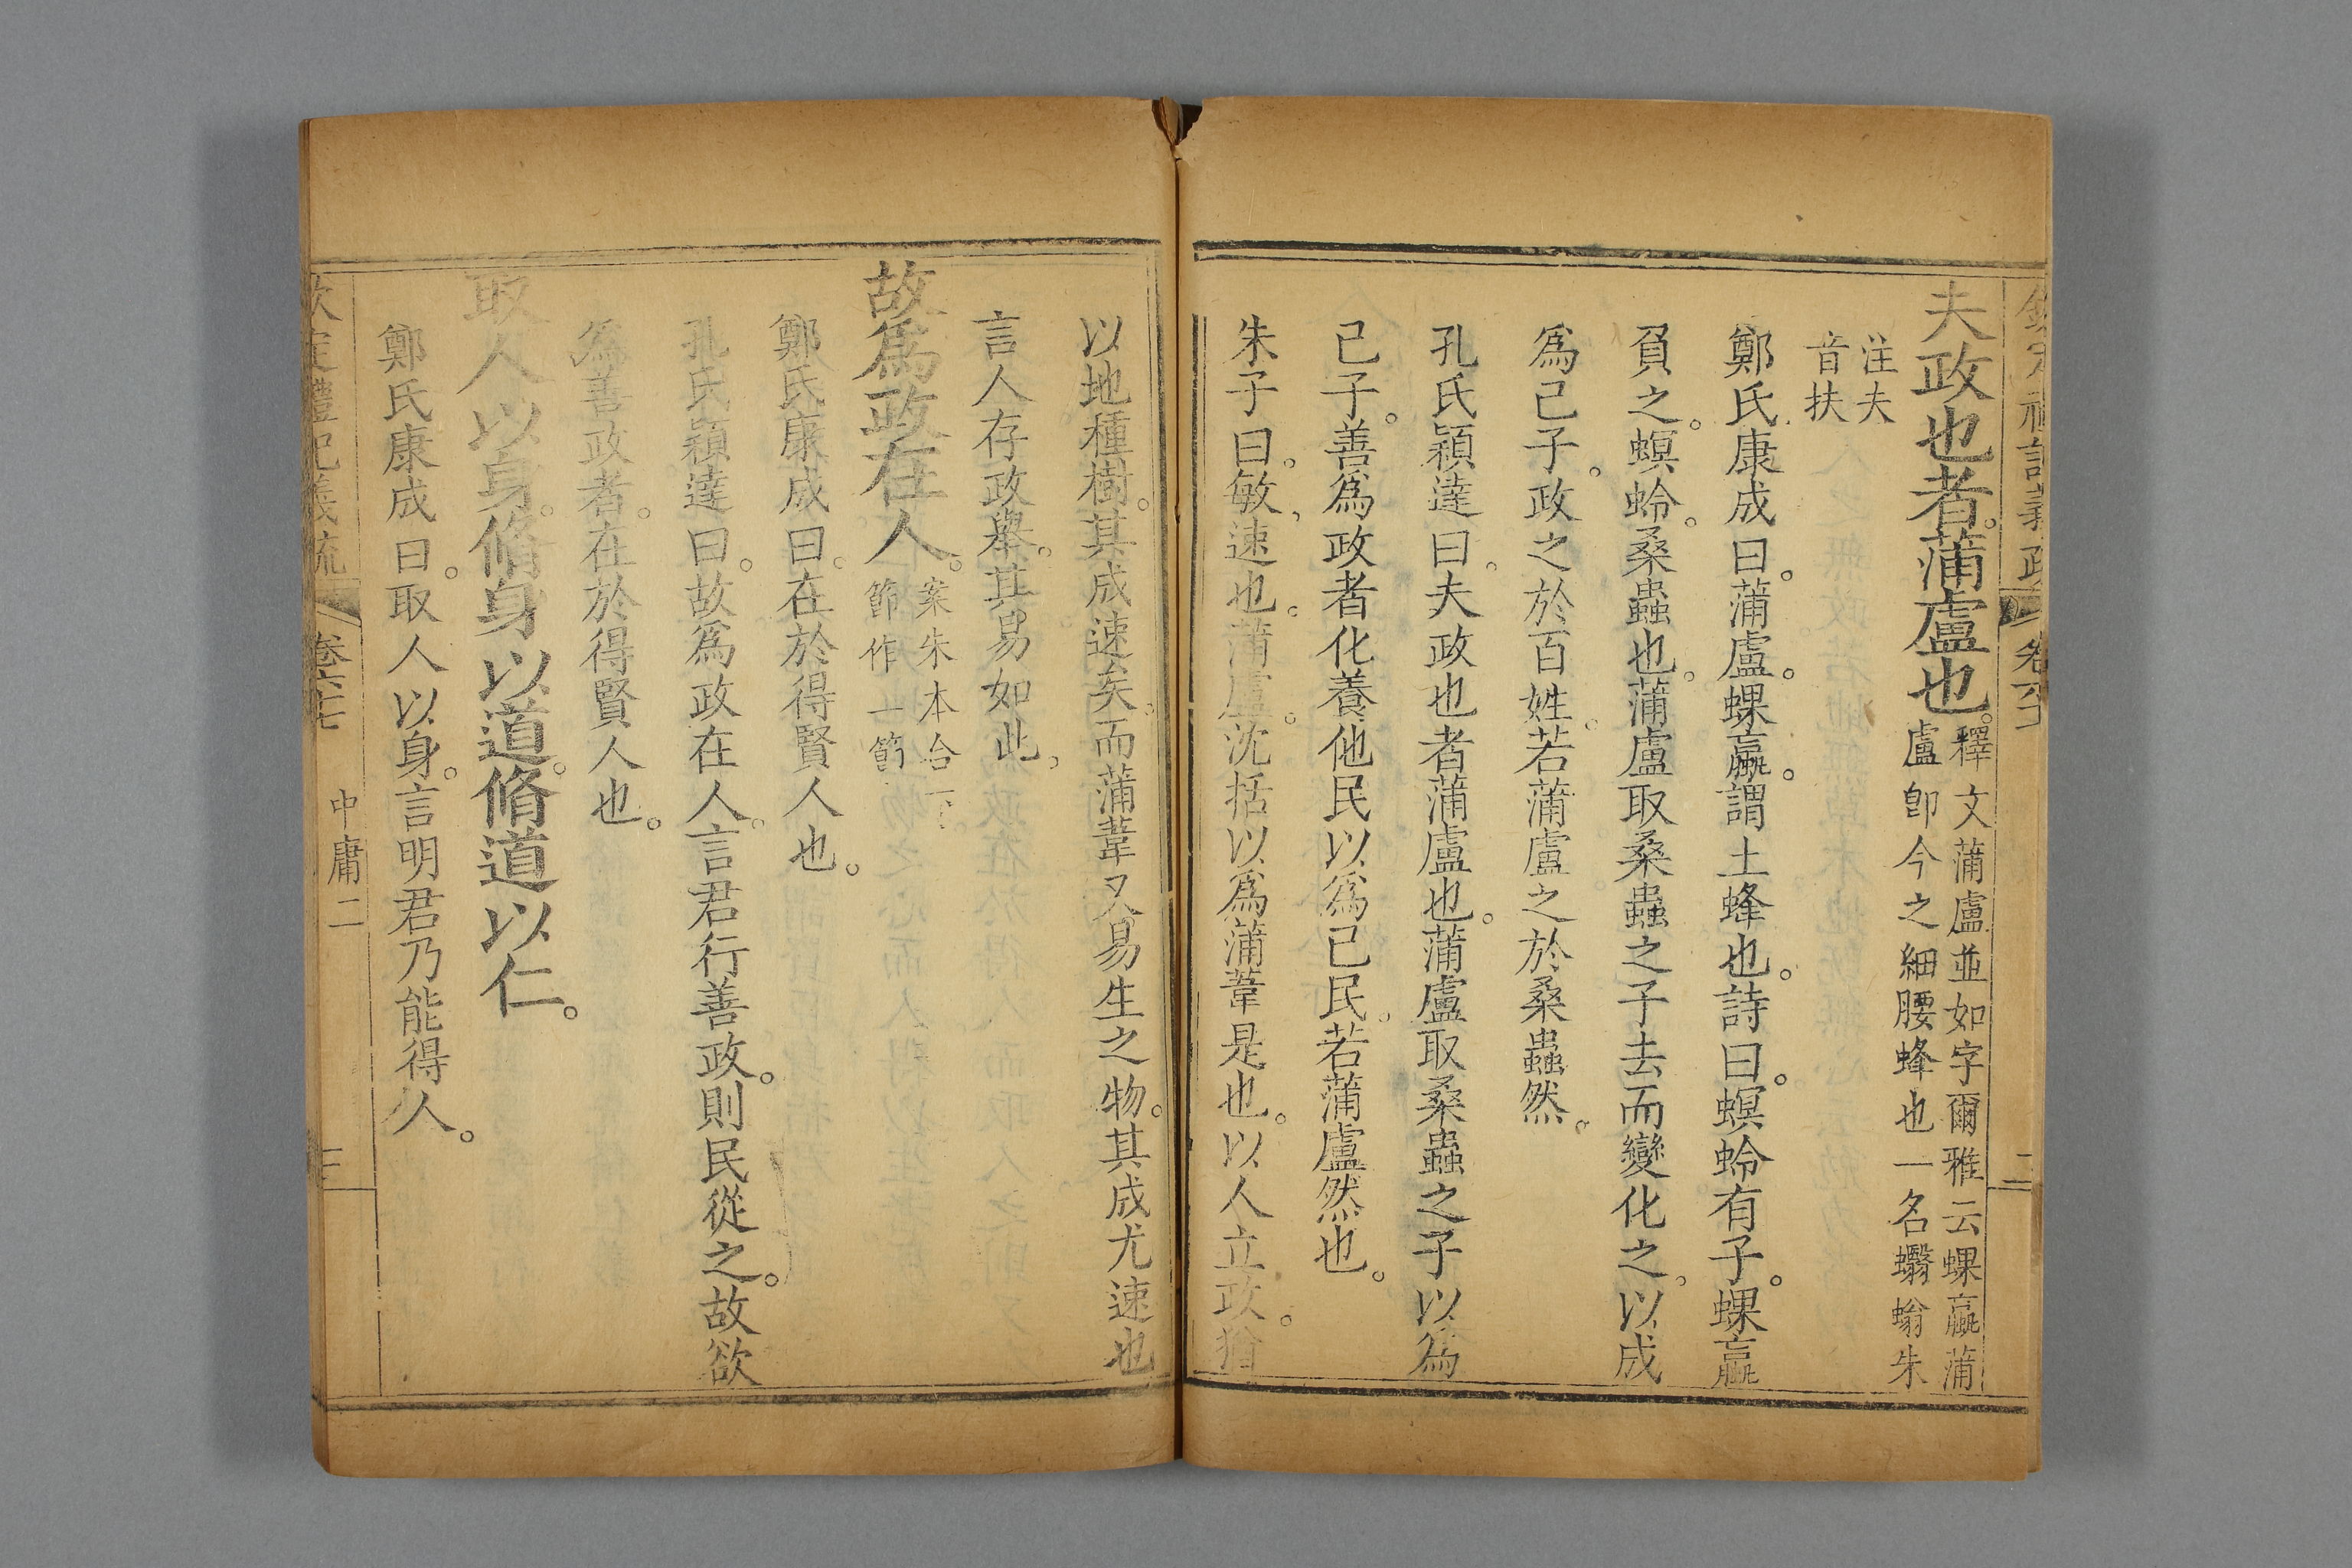 夫政也者。蒲盧也。釋文蒲盧並如字爾雅云蜾蠃蒲
盧卽今之細腰蜂也一名蠮螉朱
注夫
音扶
鄭氏康成曰。蒲盧。蜾蠃。謂土蜂也。詩曰。螟蛉有子。蜾蠃
負之。螟蛉。桑蟲也。蒲盧取桑蟲之子去而變化之。以成
爲己子。政之於百姓。若蒲盧之於桑蟲然。
孔氏穎達曰。夫政也者蒲盧也。蒲盧取桑蟲之子以爲
己子。善爲政者化養他民以爲己民。若蒲盧然也。
朱子曰。敏、速也。蒲盧。沈括以爲蒲葦是也。以人立政。猶
以地種樹。其成速矣。而蒲葦又易生之物。其成尤速也
言人存政舉。其易如此。
故爲政在人。案朱本合下
節作一節
鄭氏康成曰。在於得賢人也。
孔氏穎達曰。故爲政在人。言君行善政。則民從之。故欲
爲善政者。在於得賢人也。
取人以身。脩身以道。脩道以仁。
鄭氏康成曰。取人以身。言明君乃能得人。
欽定禮記義疏 卷六十七 中庸二 三